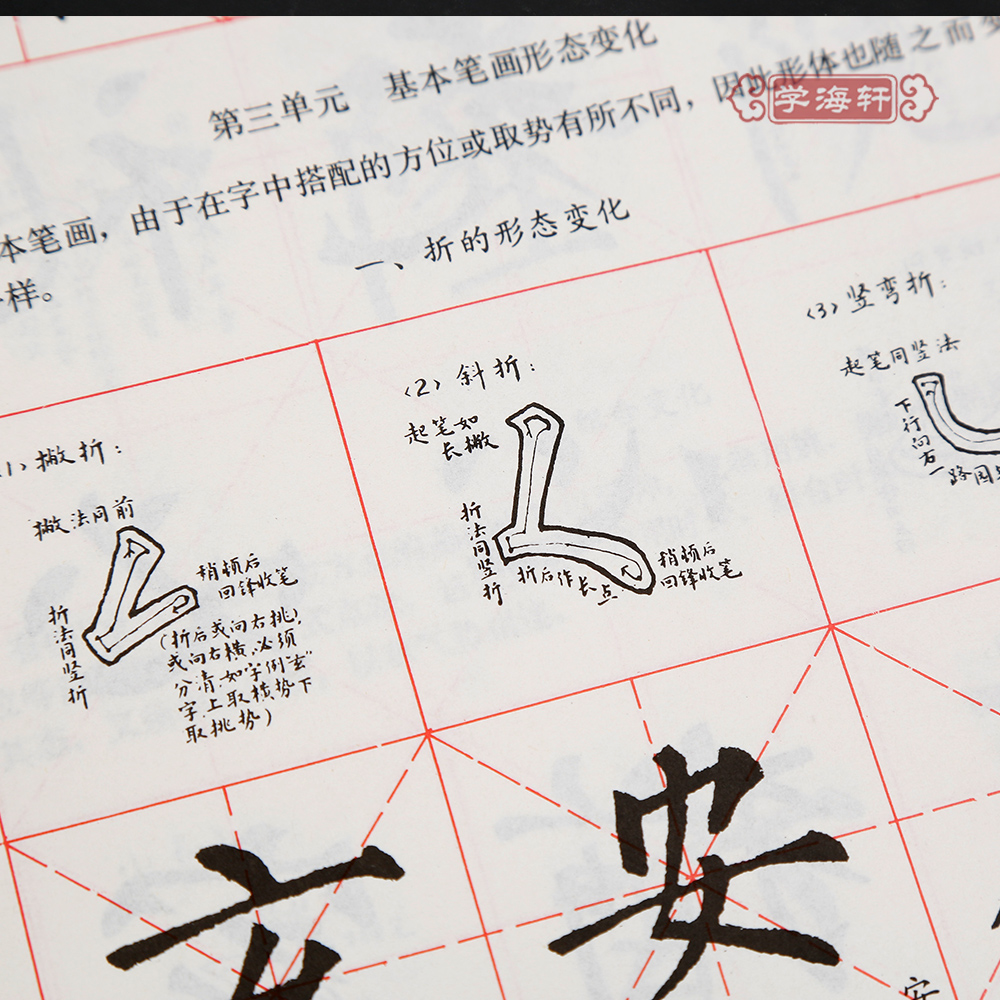 第三单元 基本笔画形态变化
本笔画，由于在字中搭配的方位或取势有所不同，因此形体也随之而变
样。
一、折的形态变化
学海轩
(1) 撇折：
撇法同前
折法同竖折
稍顿后
回锋收笔
(折后或向右挑,
或向右横,必须
分清,如字例"玄"
字上取横势下
取挑势)
(2) 斜折：
起笔如
长撇
折法同竖折
折后作长点
稍顿后
回锋收笔
(3) 竖弯折：
起笔同竖法
下行向右一
路圆
玄
安
安